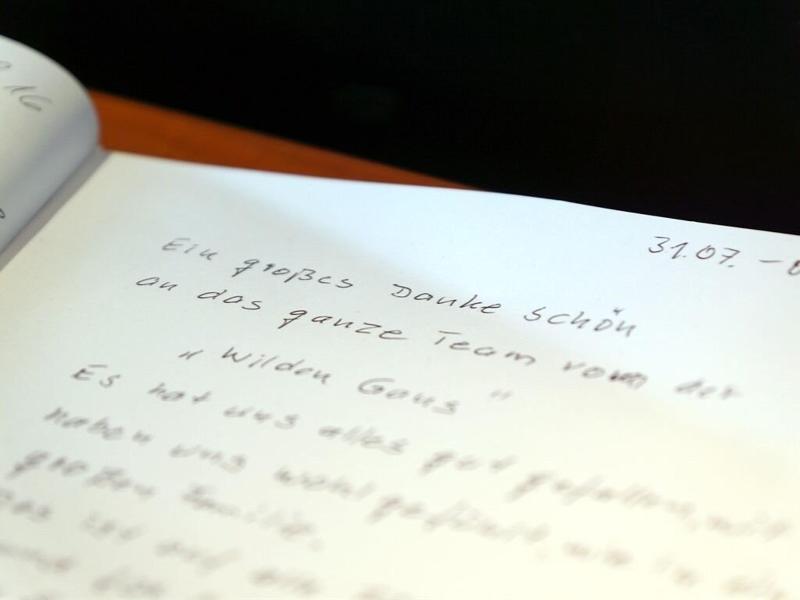 16
31.07. -
Ein großes Danke schön
an das ganze Team vom der
" Wilden Gans "
Es hat uns alles gut gefallen, wir
haben uns wohl gefühlt, wie in
großen Familie.